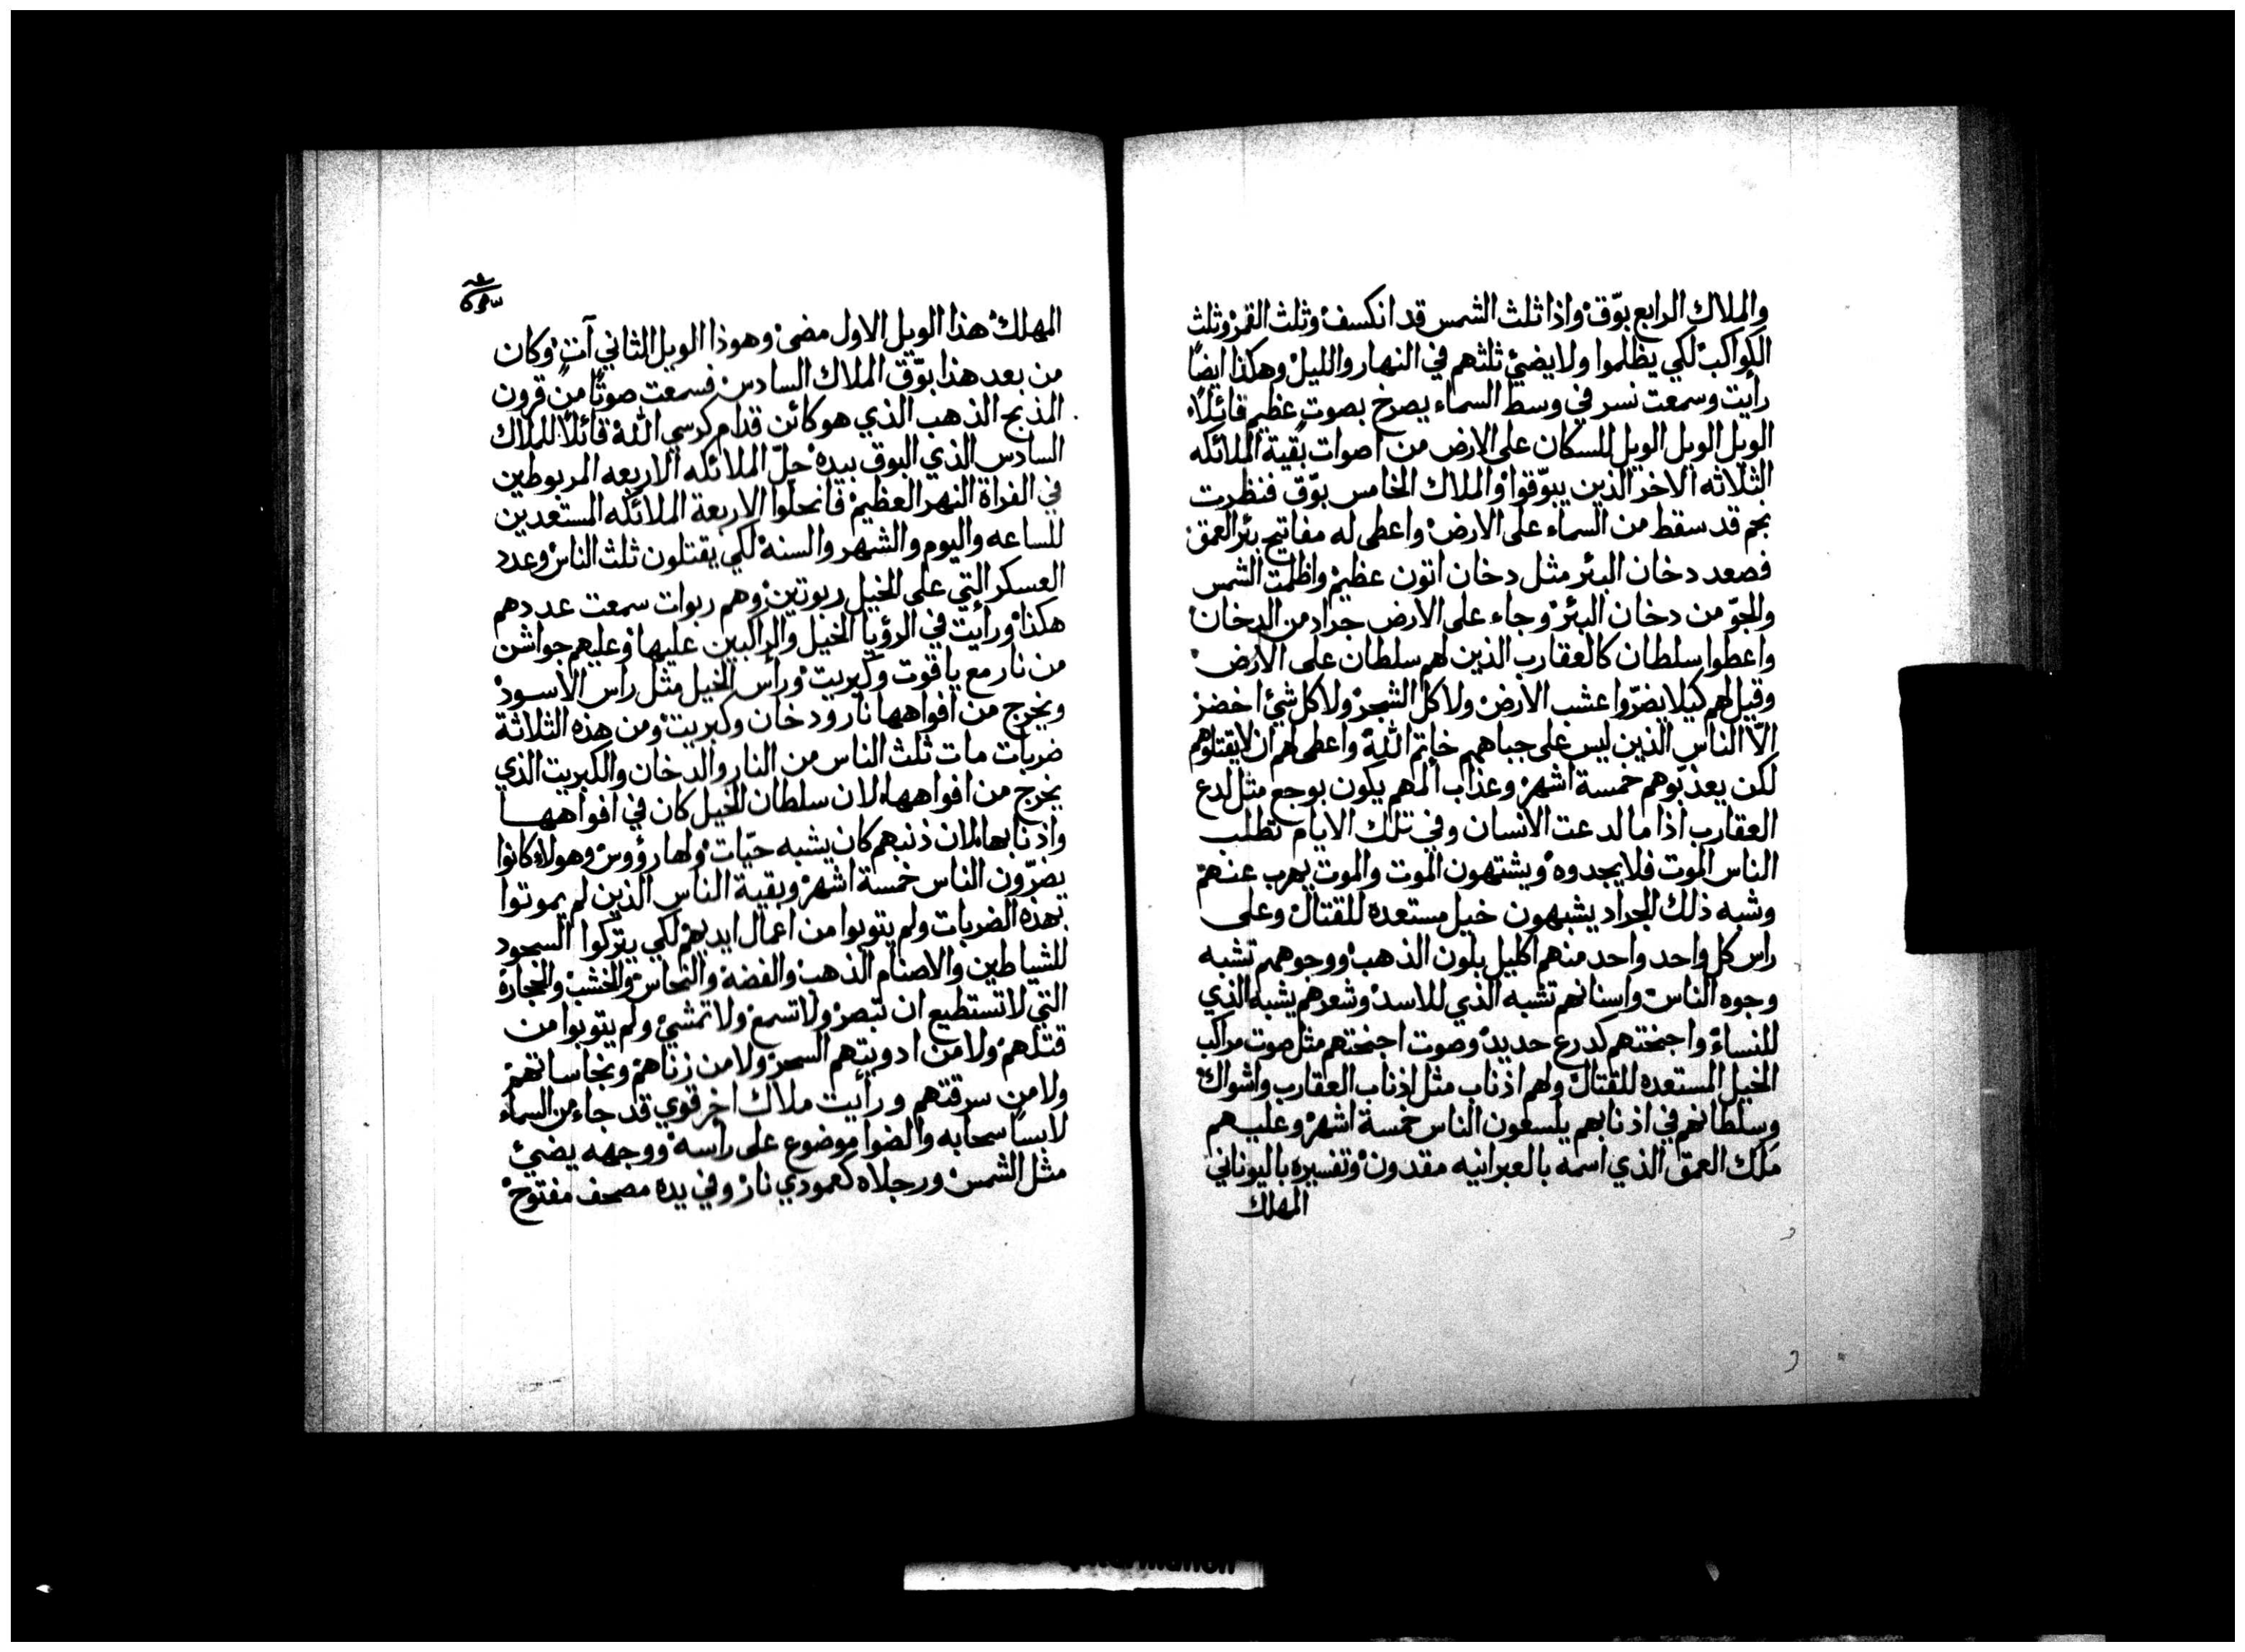 والملاك الرابع بوّق واذا ثلث الشمس قد انكسف وثلث القمر وثلث
الكواكب لكي يظلموا ولا يضيئ ثلثهم في النهار والليل وهكذا ايضًا
رأيت وسمعت نسر في وسط السماء يصرخ بصوت عظيم قائلًا
الويل الويل الويل للسكان على الارض من اصوات بقية الملائكه
الثلاثه الاخر الذين يبوّقوا والملاك الخامس بوّق فنظرت
نجم قد سقط من السماء على الارض واعطى له مفاتيح بئر العمق
فصعد دخان البئر مثل دخان اتون عظيم واظلمت الشمس
والجوّ من دخان البئر وجاء على الارض جراد من الدخان
واعطوا سلطان كالعقارب الذين لهم سلطان على الارض
وقيل لهم كيلا يضرّوا عشب الارض ولا كل الشجر ولا كل شيئ اخضر
الّا الناس الذين ليس على جباههم خاتم الله واعطى لهم ان لا يقتلوهم
لكن يعذبوهم خمسة اشهر وعذاب ألمهم يكون بوجع مثل لدع
العقارب اذا ما لدعت الانسان وفي تلك الايام تطلب
الناس الموت فلا يجدوه ويشتهون الموت والموت يهرب عنهم
وشبه ذلك الجراد يشبهون خيل مستعده للقتال وعلى
راس كل واحد واحد منهم اكليل بلون الذهب ووجوههم تشبه
وجوه الناس واسنانهم تشبه الذي للاسد وشعرهم يشبه الذي
للنساء واجنحتهم كدرع حديد وصوت اجنحتهم مثل صوت مراكب
الخيل المستعده للقتال ولهم اذناب مثل اذناب العقارب واشواك
وسلطانهم في اذنابهم يلسعون الناس خمسة اشهر وعليهم
ملك العمق الذي اسمه بالعبرانيه مقدون وتفسيره باليوناني
المهلك
المهلك هذا الويل الاول مضى وهوذا الويل الثاني آت وكان
من بعد هذا بوّق الملاك السادس فسمعت صوتًا من قرون
المذبح الذهب الذي هو كائن قدام كرسي الله قائلًا للملاك
السادس الذي البوق بيده حلّ الملائكه الاربعه المربوطين
في الفراة النهر العظيم فانحلوا الاربعة الملائكه المستعدين
للساعه واليوم والشهر والسنه لكي يقتلون ثلث الناس وعدد
العسكر التي على الخيل ربوتين وهم ربوات سمعت عددهم
هكذا ورأيت في الرؤيا الخيل والراكبين عليها وعليهم جواشن
من نار مع ياقوت وكبريت ورأس الخيل مثل راس الاسود
ويخرج من افواهها نار ودخان وكبريت ومن هذه الثلاثة
ضربات مات ثلث الناس من النار والدخان والكبريت الذي
يخرج من افواهها لان سلطان الخيل كان في افواهها
واذنابها لان ذنبهم كان يشبه حيّات ولها رؤوس وهولاء كانوا
يضرّون الناس خمسة اشهر وبقية الناس الذين لم يموتوا
بهذه الضربات ولم يتوبوا من اعمال ايديهم لكي يتركوا السجود
للشياطين والاصنام الذهب والفضه والنحاس والخشب والحجارة
التي لا تستطيع ان تبصر ولا تسمع ولا تمشي ولم يتوبوا من
قتلهم ولا من ادويتهم السحر ولا من زناهم ونجاساتهم
ولا من سرقتهم ورأيت ملاك اخر قوي قد جاء من السماء
لابسًا سحابه والضوا موضوع على رأسه ووجهه يضيئ
مثل الشمس ورجلاه كعمودي نار وفي يده مصحف مفتوح